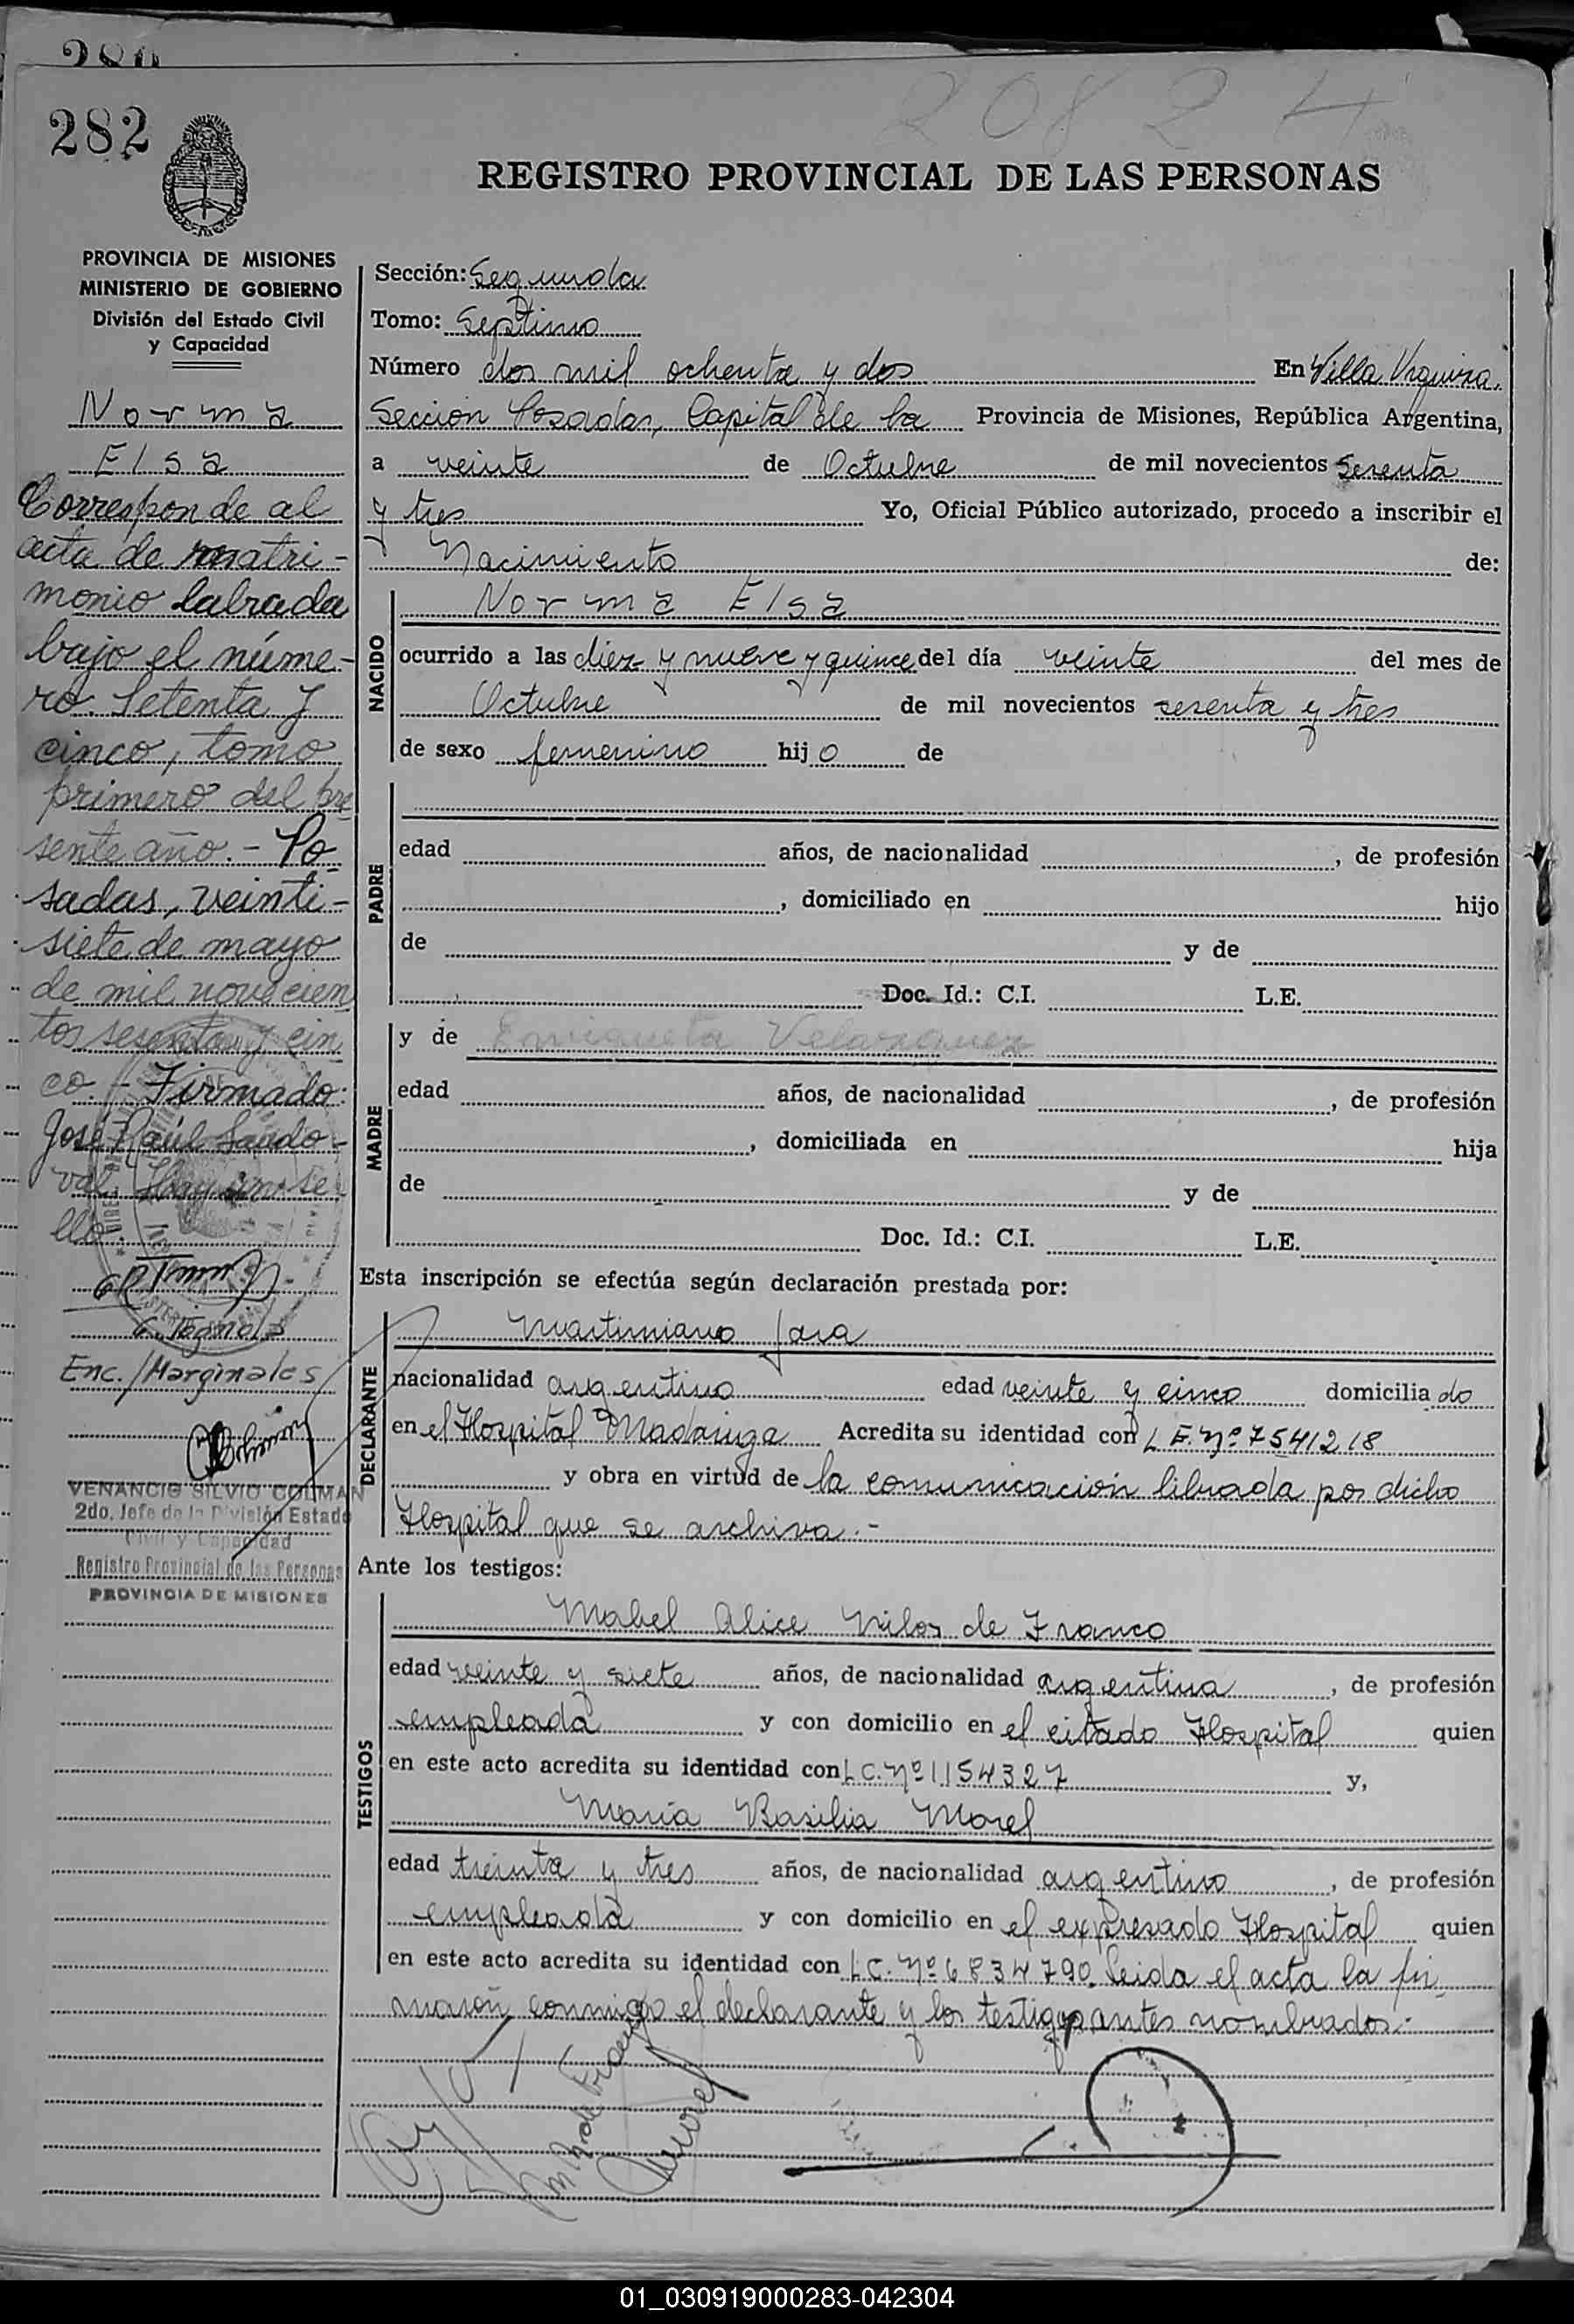 282
20824
REGISTRO PROVINCIAL DE LAS PERSONAS
PROVINCIA DE MISIONES
MINISTERIO DE GOBIERNO
División del Estado Civil
y Capacidad
Norma
Elsa
Corresponde al
acta de matri-
monio labrada
bajo el núme-
ro. Setenta y
cinco, tomo
primero del pre
sente año. - Po
sadas, veinti-
siete de mayo
de mil novecien
tos sesenta y cin
co. - Firmado:
José Raúl Sando-
val. Hay un se-
llo.
Enc./Marginales
VENANCIO SILVIO COLMAN
2do. Jefe de la División Estado
Civil y Capacidad
Registro Provincial de las Personas
PROVINCIA DE MISIONES
Sección: Segunda
Tomo: Septimo
Número dos mil ochenta y dos En Villa Urquiza.
Sección Posadas, Capital de la Provincia de Misiones, República Argentina,
a veinte de Octubre de mil novecientos sesenta
y tres Yo, Oficial Público autorizado, procedo a inscribir el
Nacimiento de:
NACIDO
Norma Elsa
ocurrido a las diez y nueve y quince del día veinte del mes de
Octubre de mil novecientos sesenta y tres
de sexo femenino hijo de
PADRE
edad años, de nacionalidad , de profesión
, domiciliado en hijo
de y de
Doc. Id.: C.I. L.E.
MADRE
y de Enriqueta Velazquez
edad años, de nacionalidad , de profesión
, domiciliada en hija
de y de
Doc. Id.: C.I. L.E.
Esta inscripción se efectúa según declaración prestada por:
DECLARANTE
Martimiano Jara
nacionalidad argentino edad veinte y cinco domiciliado
en el Hospital Madariaga Acredita su identidad con L.E. Nº 7541218
y obra en virtud de la comunicación librada por dicho
Hospital que se archiva.-
Ante los testigos:
TESTIGOS
Mabel Alice de Franco
edad veinte y siete años, de nacionalidad argentina , de profesión
empleada y con domicilio en el citado Hospital quien
en este acto acredita su identidad con L.C. Nº 1154327 y,
María Basilia Morel
edad treinta y tres años, de nacionalidad argentino , de profesión
empleada y con domicilio en el expresado Hospital quien
en este acto acredita su identidad con L.C. Nº 6834790. Leida el acta la fir
maron conmigo el declarante y los testigos antes nombrados.-
Morel
01_030919000283-042304